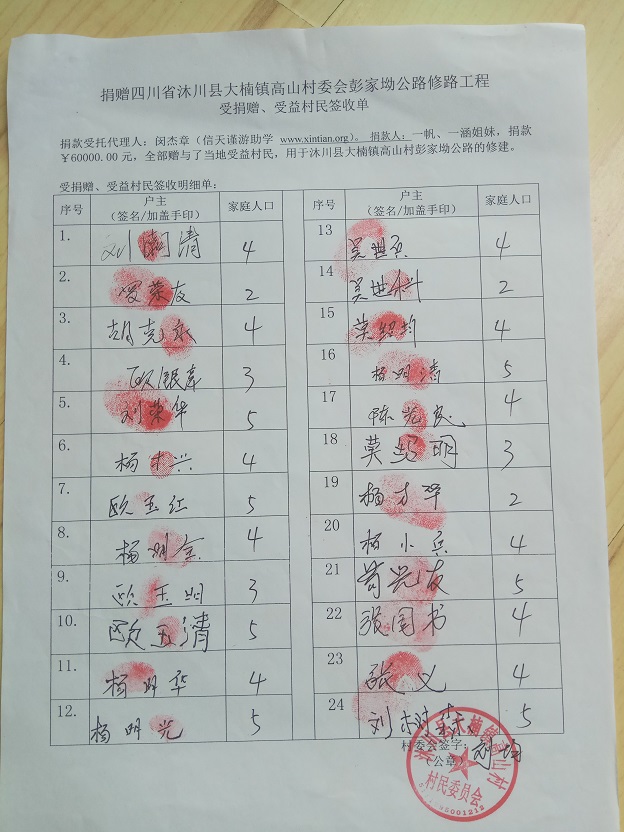 捐赠四川省沐川县大楠镇高山村委会彭家坳公路修路工程
受捐赠、受益村民签收单
捐款受托代理人：闵杰章（信天谨游助学 www.xintian.org）。捐款人：一帆、一涵姐妹，捐款
￥60000.00元，全部赠与了当地受益村民，用于沐川县大楠镇高山村彭家坳公路的修建。
受捐赠、受益村民签收明细单：
序号 户主（签名/加盖手印） 家庭人口
1. 刘 清 4
2. 荣友 2
3. 胡克永 4
4. 欧银 3
5. 刘荣华 5
6. 杨才兴 4
7. 欧玉红 5
8. 杨明全 4
9. 欧玉明 3
10. 欧玉清 5
11. 杨明华 4
12. 杨明光 5
序号 户主（签名/加盖手印） 家庭人口
13 吴世 4
14 吴世 2
15 莫绍均 4
16 杨明清 5
17 陈光民 4
18 莫绍明 3
19 杨才华 2
20 杨小兵 4
21 光友 5
22 张国书 4
23 张义 4
24 刘树森 5
村委会签字： 刘
（公章）
沐川县大楠镇高山村
村民委员会